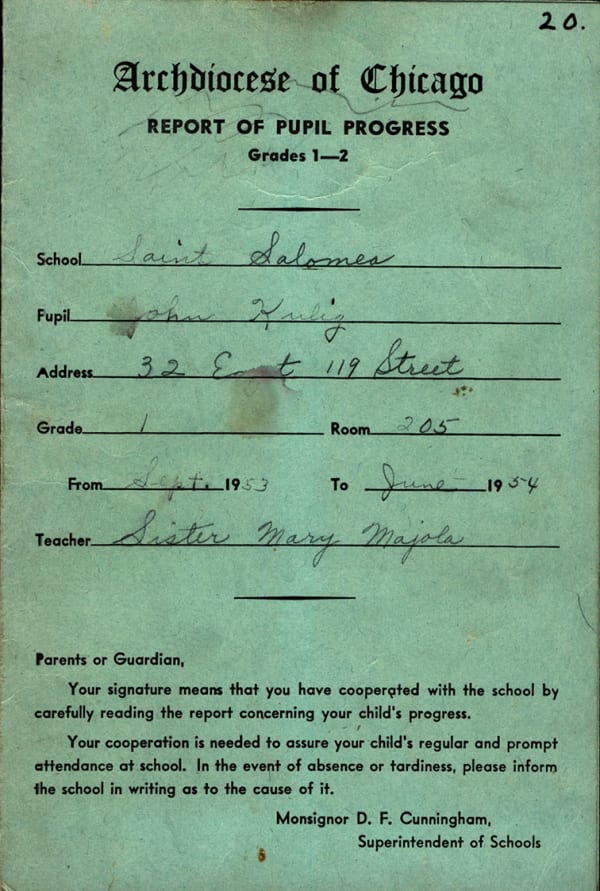 20.
Archdiocese of Chicago
REPORT OF PUPIL PROGRESS
Grades 1—2
School Saint Salomea
Pupil John Kulig
Address 32 East 119 Street
Grade 1 Room 205
From Sept. 1953 To June 1954
Teacher Sister Mary Majola
Parents or Guardian,
Your signature means that you have cooperated with the school by
carefully reading the report concerning your child's progress.
Your cooperation is needed to assure your child's regular and prompt
attendance at school. In the event of absence or tardiness, please inform
the school in writing as to the cause of it.
Monsignor D. F. Cunningham,
Superintendent of Schools